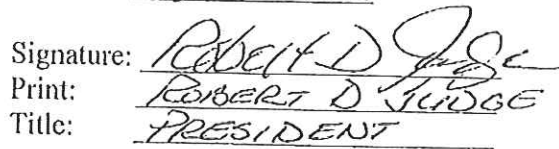 Signature: Robert D Judge
Print: ROBERT D JUDGE
Title: PRESIDENT